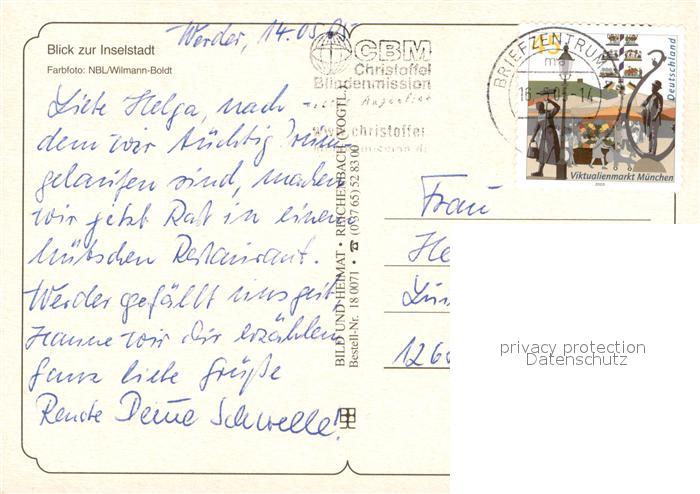 Werder, 14.05.05
Blick zur Inselstadt
Farbfoto: NBL/Wilmann-Boldt
CBM
Christoffel
Blindenmission
www.christoffel
BRIEFZENTRUM
Deutschland
Viktualienmarkt München
2003
Liebe Helga, nach-
dem wir tüchtig
gelaufen sind, machen
wir jetzt Rast in einem
hübschen Restaurant.
Werder gefällt uns gut
wir dir erzählen
Ganz liebe Grüße
Renate Deine Schwelle!
BILD UND HEIMAT • REICHENBACH (VOGTL)
Bestell-Nr. 18 0071 • ☎ (0 37 65) 52 83 00
Frau
He
126
privacy protection
Datenschutz